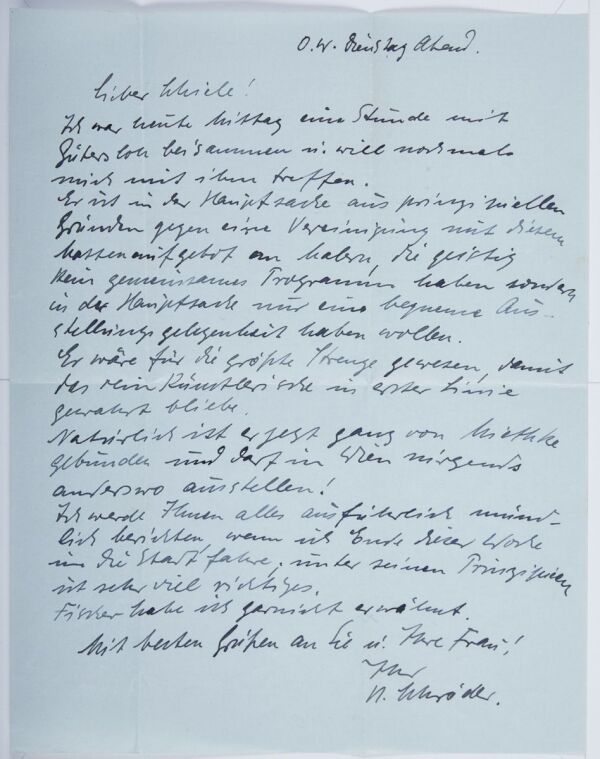 O.W. Dienstag Abend.
Lieber Schiele!
Ich war heute Mittag eine Stunde mit
Gütersloh beisammen u. will nochmals
mich mit ihm treffen.
Er ist in der Hauptsache aus prinzipiellen
Gründen gegen eine Vereinigung mit diesem
Massenaufgebot an Malern, die geistig
kein gemeinsames Programm haben sondern
in der Hauptsache nur eine bequeme Aus-
stellungsgelegenheit haben wollen.
Er wäre für die größte Strenge gewesen, damit
das rein Künstlerische in erster Linie
gewahrt bliebe.
Natürlich ist er jetzt ganz von Miethke
gebunden und darf in Wien nirgends
anderswo ausstellen!
Ich werde Ihnen alles ausführlich münd-
lich berichten, wenn ich Ende dieser Woche
in die Stadt fahre, unter seinen Prinzipien
ist sehr viel richtiges.
Fischer habe ich garnicht erwähnt.
Mit besten Grüßen an Sie u. Ihre Frau!
Ihr
Schröder.